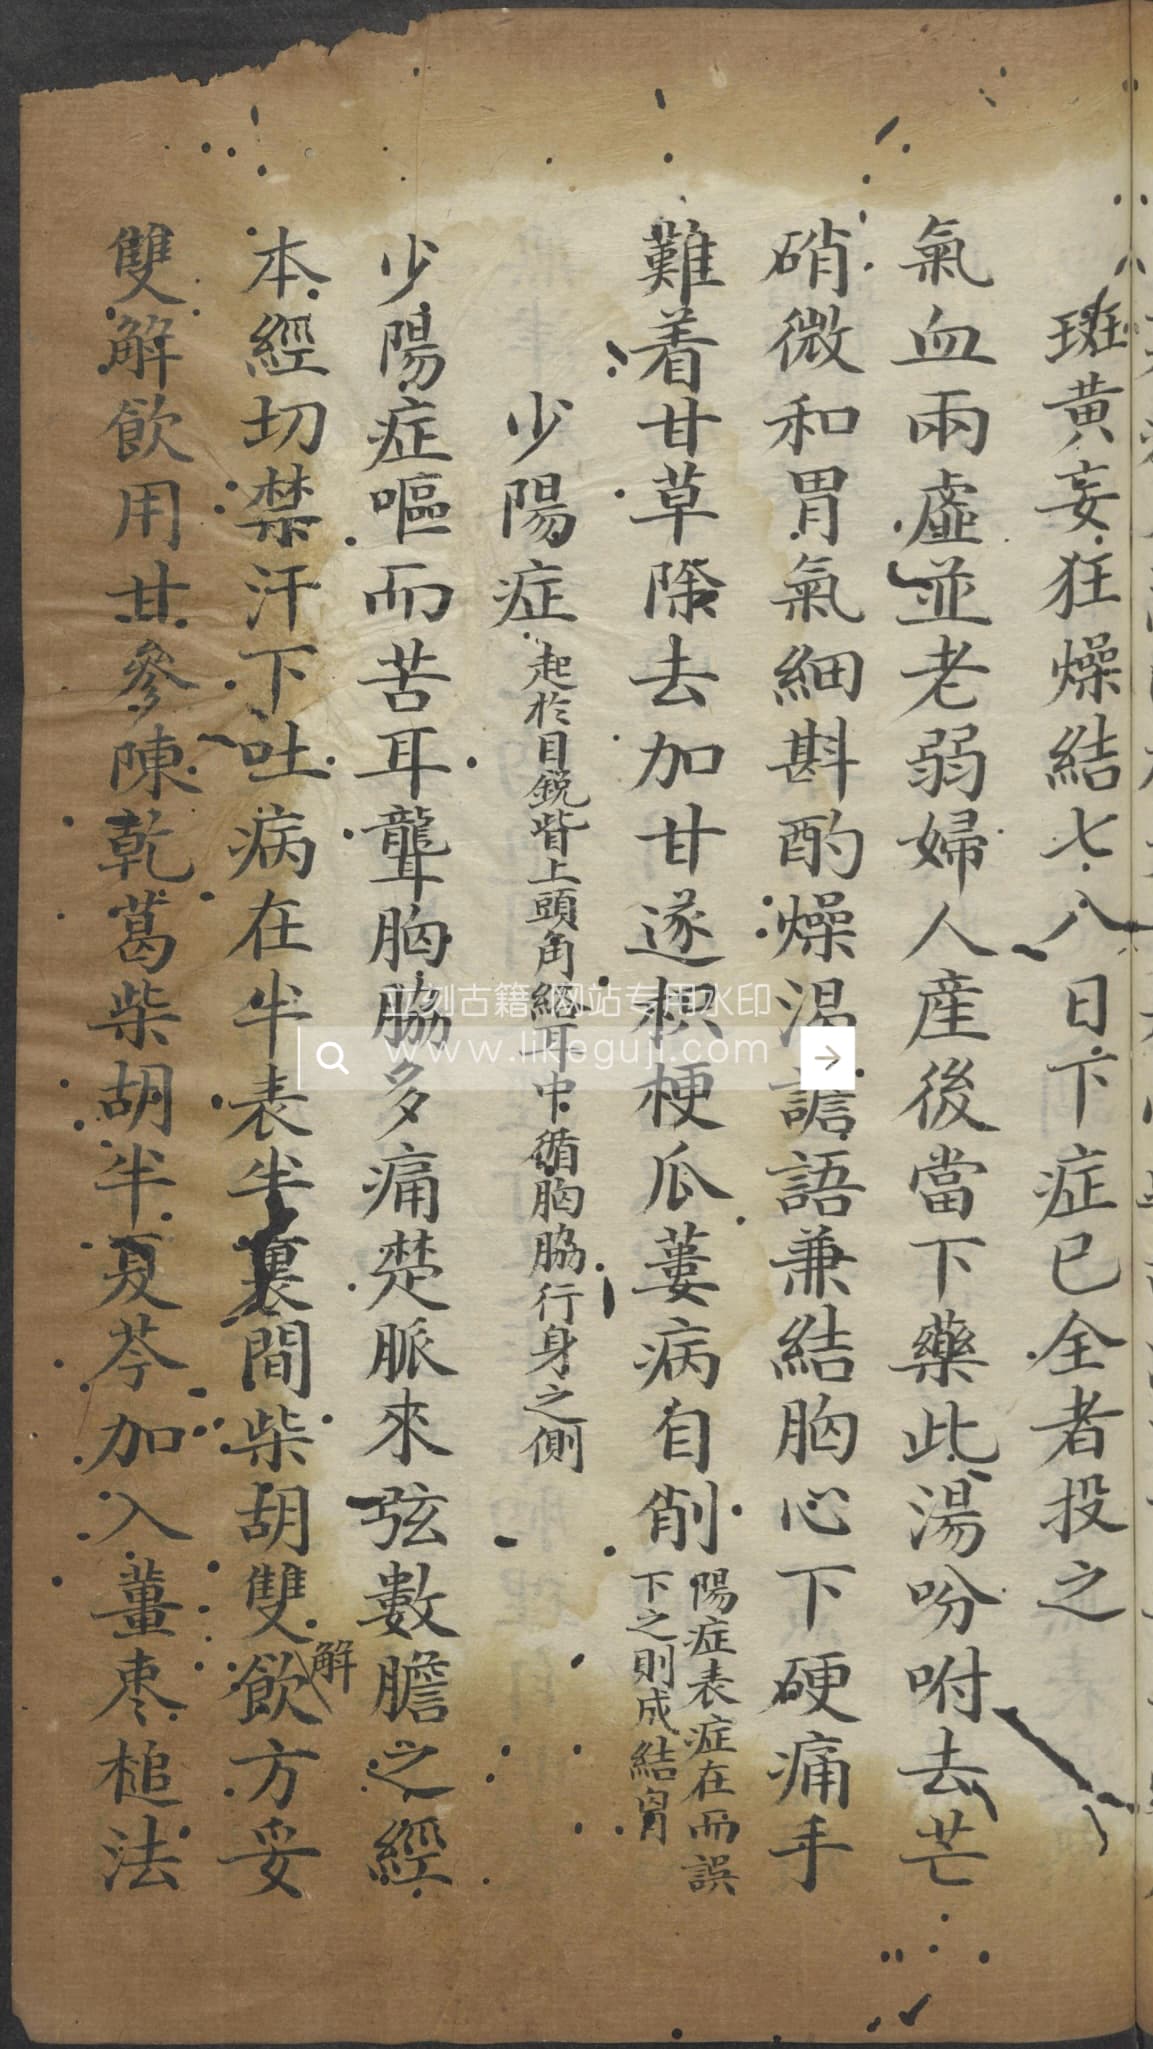 斑黄妄狂燥結七八日下症已全者投之
氣血兩虛並老弱婦人產後當下藥此湯吩咐去芒
硝微和胃氣細斟酌燥渴譫語兼結胸心下硬痛手
難着甘草除去加甘遂枳梗瓜蔞病自削
陽症表症在而誤
下之則成結胷
少陽症
起於目銳眥上頭角絡耳中循胸脇行身之側
少陽症嘔而苦耳聾胸脇多痛楚脈來弦數膽之經
本經切禁汗下吐病在半表半裏間柴胡雙解飲方妥
雙解飲用甘參陳乾葛柴胡半夏芩加入薑枣槌法
刻古籍 网站专用水印
www.likeguji.com